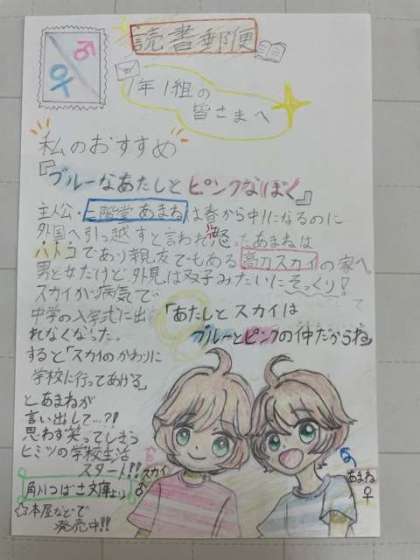 読書郵便
1年1組の
皆さまへ
私のおすすめ
『ブルーなあたしとピンクなぼく』
主人公・二階堂あまねは春から中1になるのに
外国へ引っ越すと言われ怒った。あまねは
いとこであり親友でもある高力スカイの家へ
男と女だけど外見は双子みたいにそっくり!
スカイが病気で
中学の入学式に出
れなくなった。
「あたしとスカイは
ブルーとピンクの仲だからね」
すると「スカイのかわりに
学校に行ってあげる」
とあまねが
言い出して…?!
思わず笑ってしまう
ヒミツの学校生活
スタート!!
スカイ
♂
あまね
♀
角川つばさ文庫より
本屋などで
発売中!!